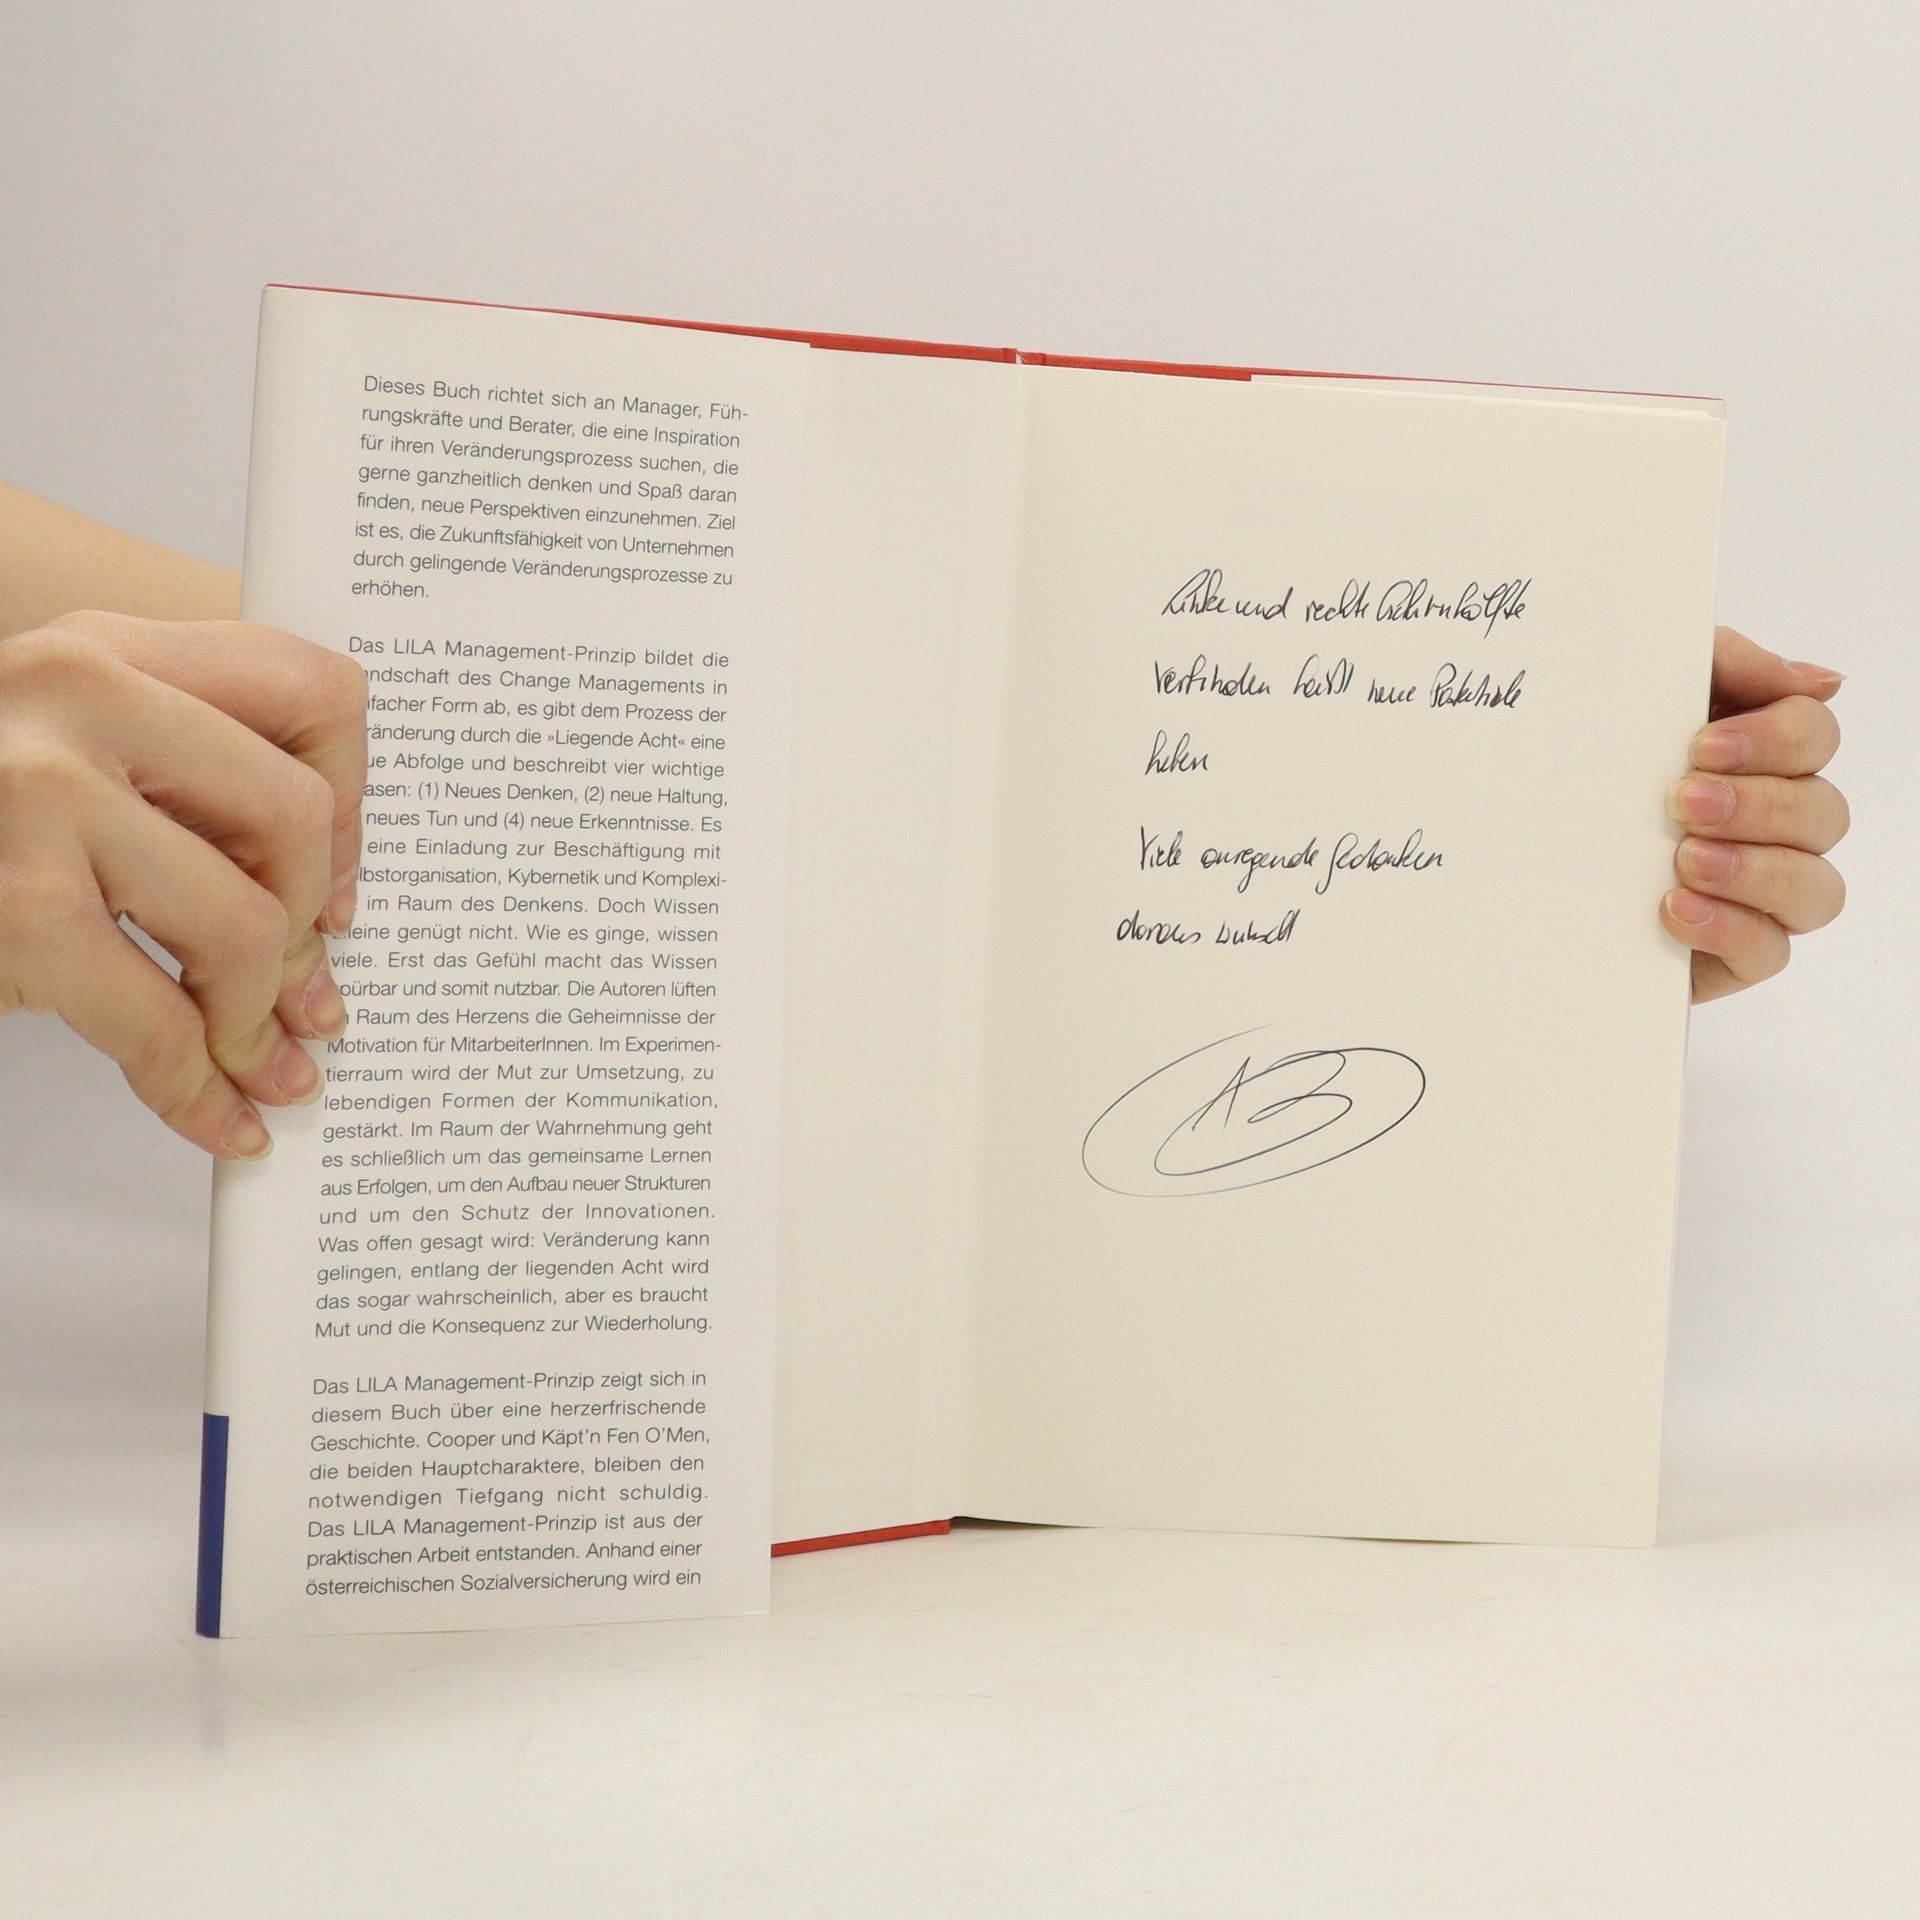 Dieses Buch richtet sich an Manager, Füh-
rungskräfte und Berater, die eine Inspiration
für ihren Veränderungsprozess suchen, die
gerne ganzheitlich denken und Spaß daran
finden, neue Perspektiven einzunehmen. Ziel
ist es, die Zukunftsfähigkeit von Unternehmen
durch gelingende Veränderungsprozesse zu
erhöhen.
Das LILA Management-Prinzip bildet die
andschaft des Change Managements in
nfacher Form ab, es gibt dem Prozess der
ränderung durch die »Liegende Acht« eine
ue Abfolge und beschreibt vier wichtige
asen: (1) Neues Denken, (2) neue Haltung,
neues Tun und (4) neue Erkenntnisse. Es
eine Einladung zur Beschäftigung mit
lbstorganisation, Kybernetik und Komplexi-
im Raum des Denkens. Doch Wissen
leine genügt nicht. Wie es ginge, wissen
viele. Erst das Gefühl macht das Wissen
pürbar und somit nutzbar. Die Autoren lüften
Raum des Herzens die Geheimnisse der
Motivation für MitarbeiterInnen. Im Experimen-
tierraum wird der Mut zur Umsetzung, zu
lebendigen Formen der Kommunikation,
gestärkt. Im Raum der Wahrnehmung geht
es schließlich um das gemeinsame Lernen
aus Erfolgen, um den Aufbau neuer Strukturen
und um den Schutz der Innovationen.
Was offen gesagt wird: Veränderung kann
gelingen, entlang der liegenden Acht wird
das sogar wahrscheinlich, aber es braucht
Mut und die Konsequenz zur Wiederholung.
Das LILA Management-Prinzip zeigt sich in
diesem Buch über eine herzerfrischende
Geschichte. Cooper und Käpt'n Fen O'Men,
die beiden Hauptcharaktere, bleiben den
notwendigen Tiefgang nicht schuldig.
Das LILA Management-Prinzip ist aus der
praktischen Arbeit entstanden. Anhand einer
österreichischen Sozialversicherung wird ein
Linke und rechte Gehirnhälfte
verbinden heißt neue Potentiale
heben
Viele anregende Gedanken
daraus wünscht